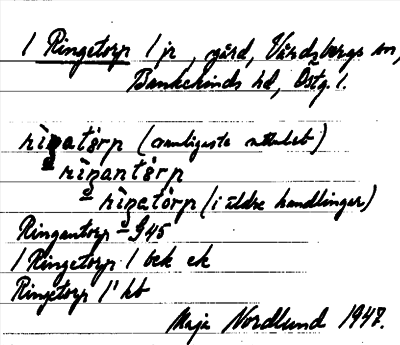 / Ringetorp / jr, gård, Vårdsbergs sn,
Bankekinds hd, Östg. l.
rìŋatòrp (vanligaste uttalet)
o rìŋantòrp
o rìŋatòrp (i äldre handlingar)
Ringantorp – G45
/ Ringetorp / bek ek
Ringetorp /¹ kb
Maja Nordlund 1947.